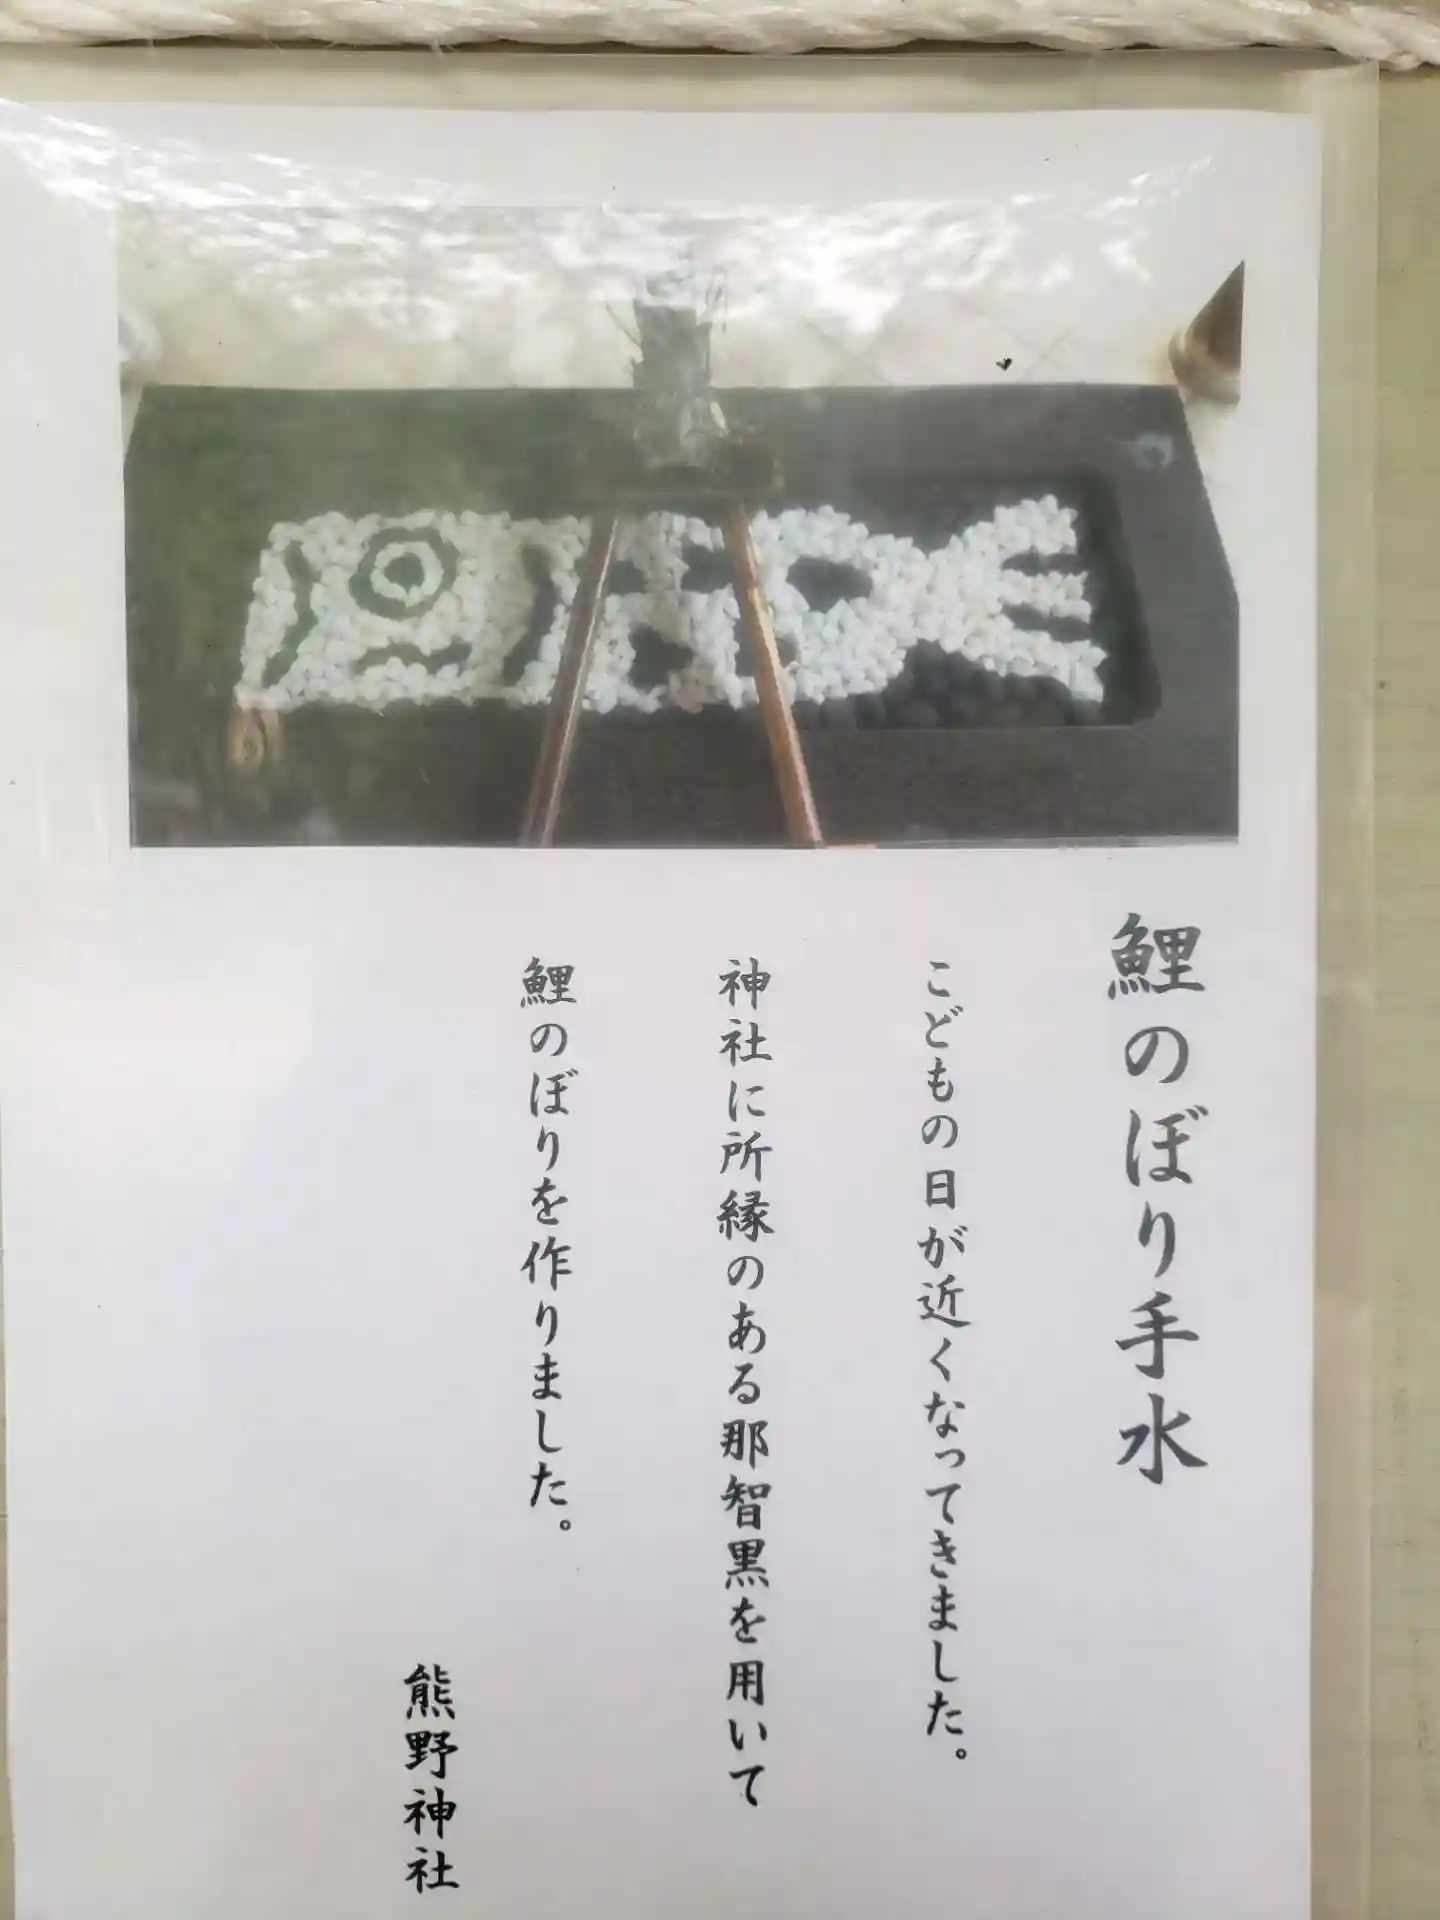 鯉のぼり手水
こどもの日が近くなってきました。
神社に所縁のある那智黒を用いて
鯉のぼりを作りました。
熊野神社